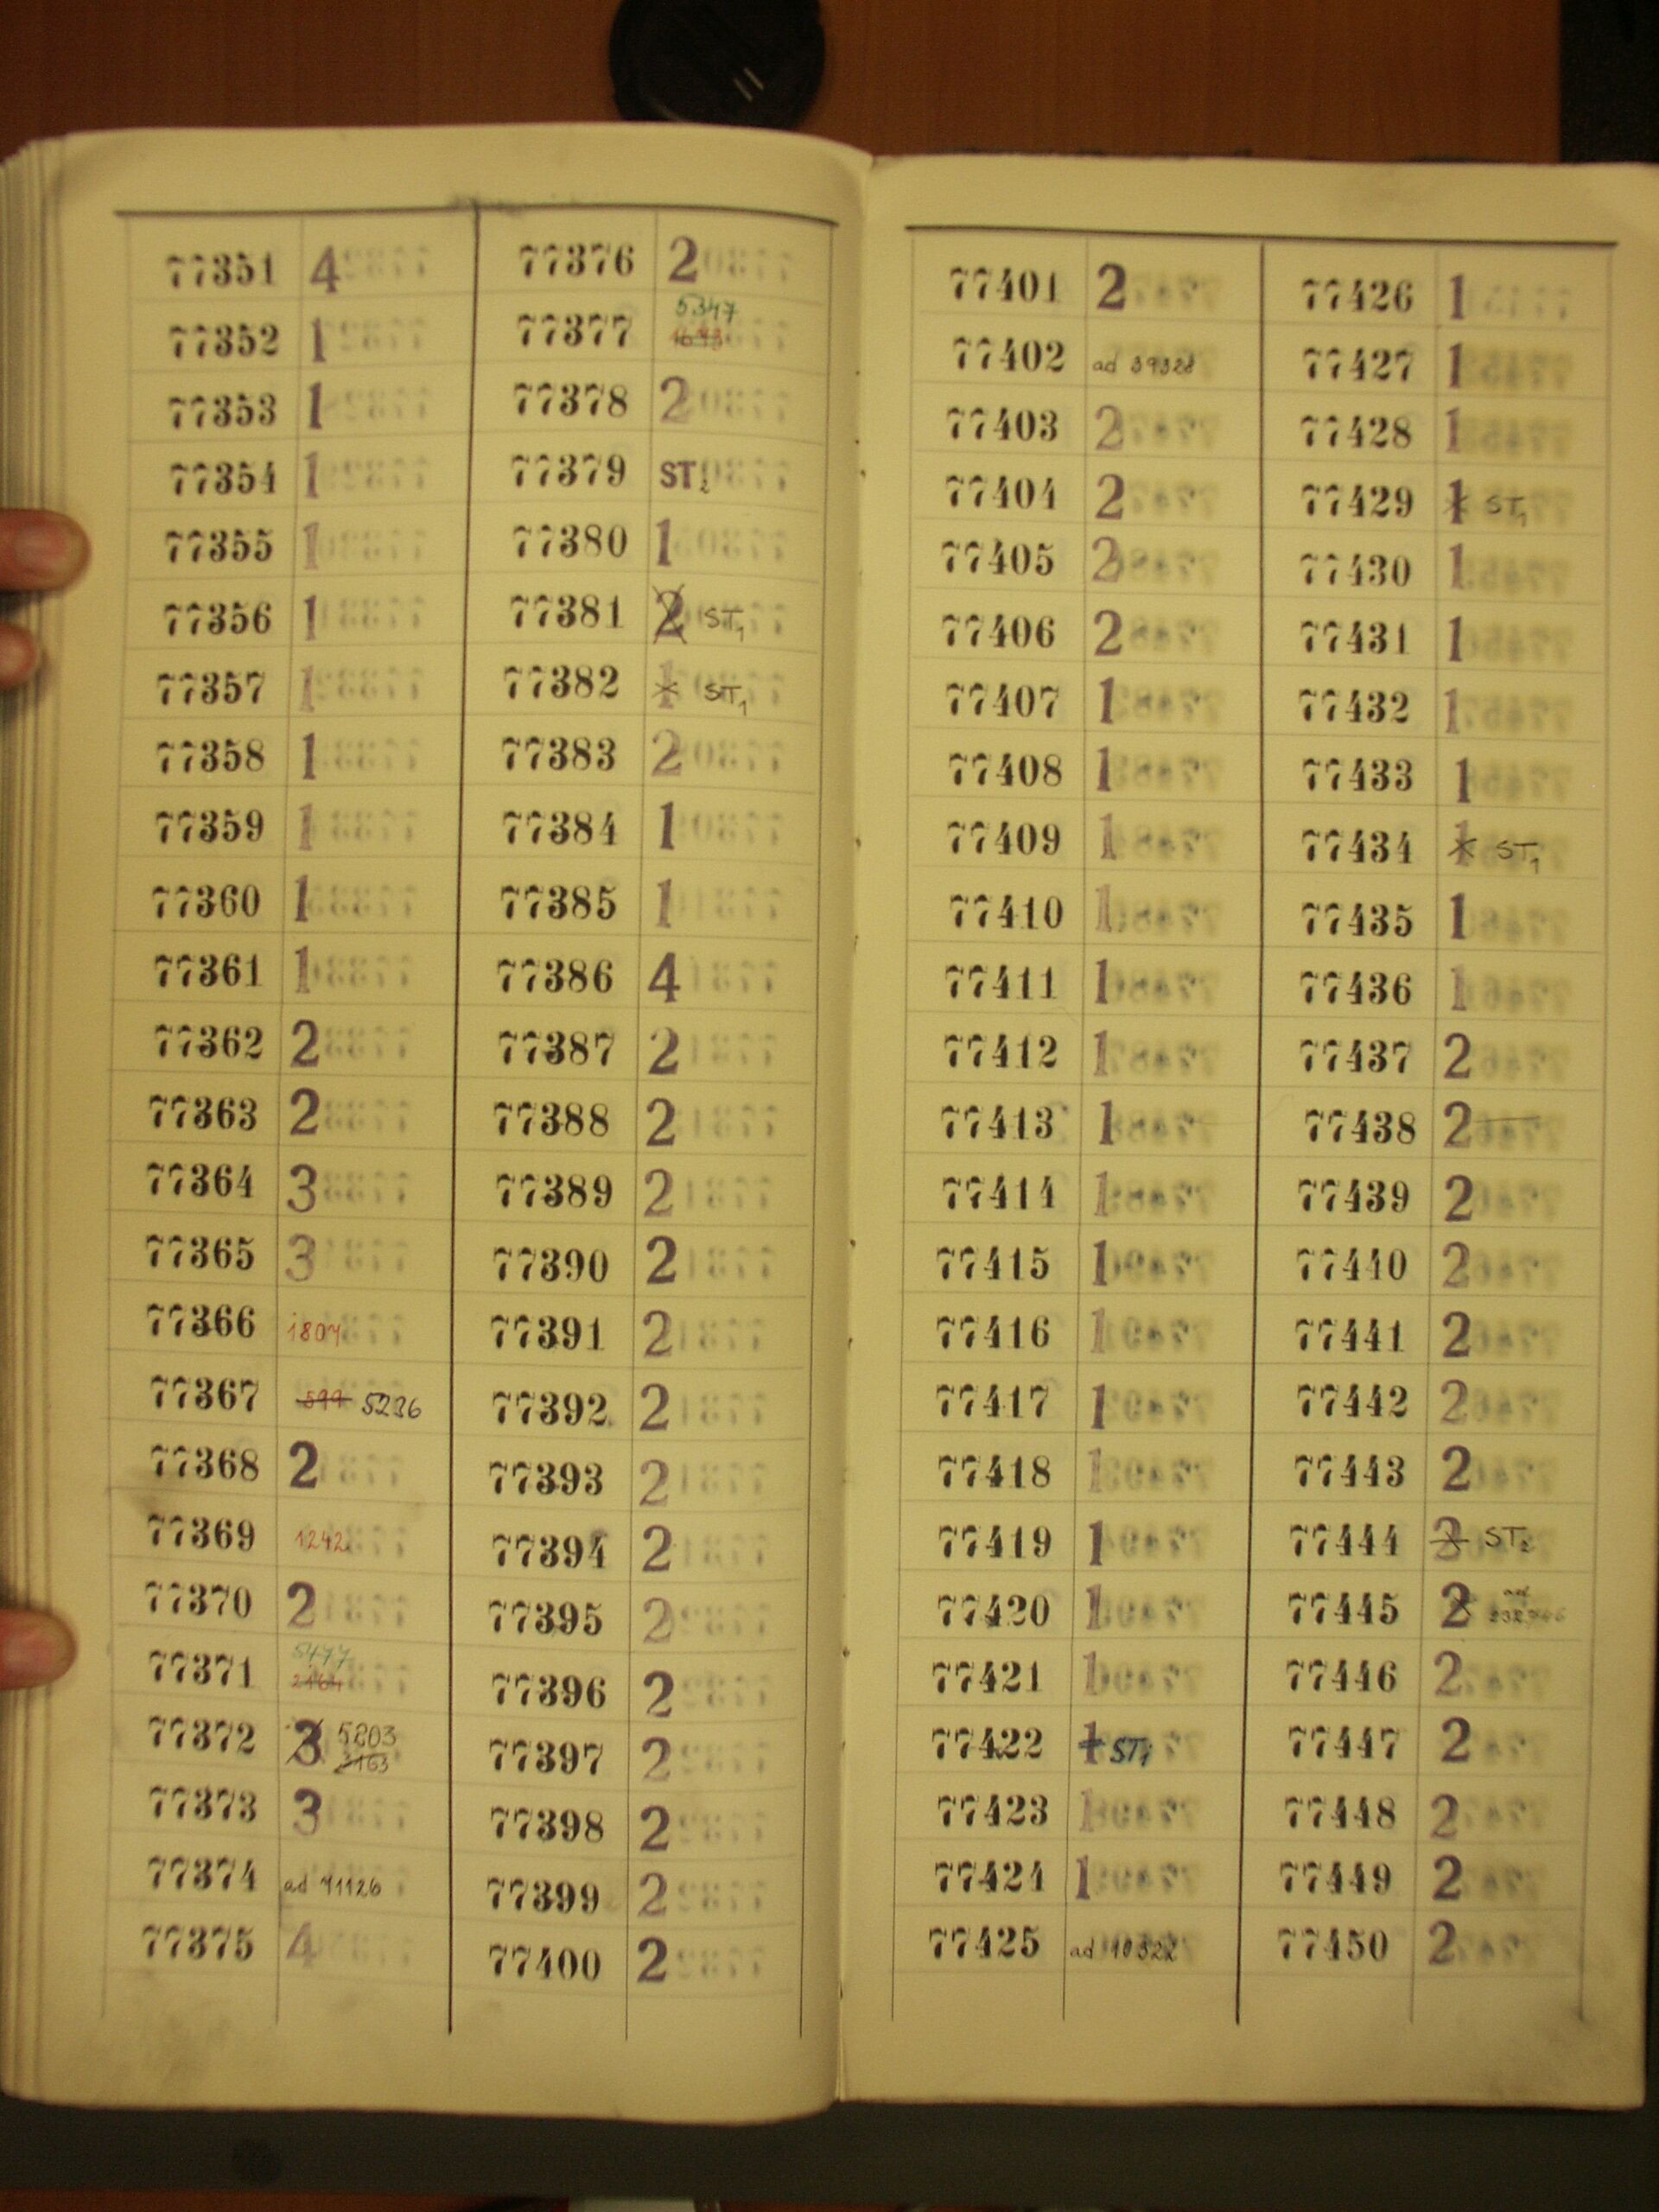 77351 4
77352 1
77353 1
77354 1
77355 1
77356 1
77357 1
77358 1
77359 1
77360 1
77361 1
77362 2
77363 2
77364 3
77365 3
77366 1807
77367 599 5236
77368 2
77369 1242
77370 2
77371 5477
77372 3 5203
3163
77373 3
77374 ad 71126
77375 4
77376 2
77377 5347
77378 2
77379 ST2
77380 1
77381 2 ST1
77382 1 ST1
77383 2
77384 1
77385 1
77386 4
77387 2
77388 2
77389 2
77390 2
77391 2
77392 2
77393 2
77394 2
77395 2
77396 2
77397 2
77398 2
77399 2
77400 2
77401 2
77402 ad 39328
77403 2
77404 2
77405 2
77406 2
77407 1
77408 1
77409 1
77410 1
77411 1
77412 1
77413 1
77414 1
77415 1
77416 1
77417 1
77418 1
77419 1
77420 1
77421 1
77422 1 ST1
77423 1
77424 1
77425 ad 10322
77426 1
77427 1
77428 1
77429 1 ST1
77430 1
77431 1
77432 1
77433 1
77434 1 ST1
77435 1
77436 1
77437 2
77438 2
77439 2
77440 2
77441 2
77442 2
77443 2
77444 3 ST2
77445 2 ad
77446 2
77447 2
77448 2
77449 2
77450 2